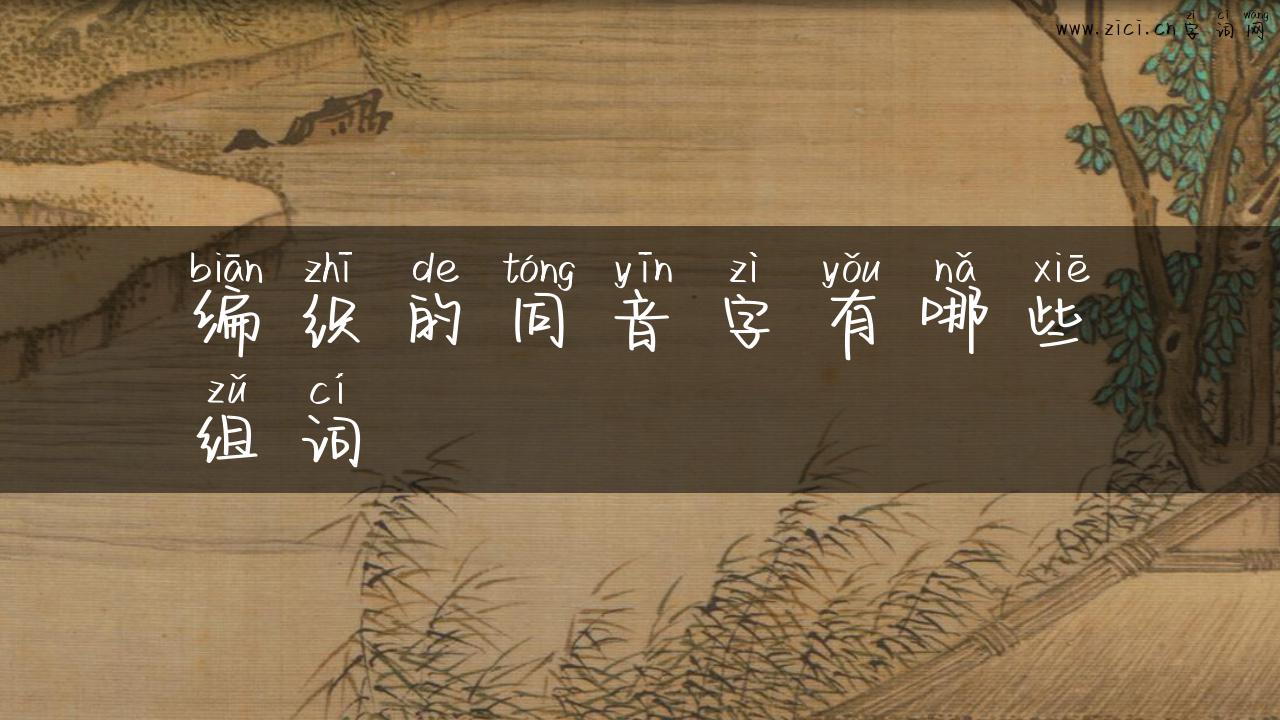 zì cí wǎng
www.zici.cn字词网
biān zhī de tóng yīn zì yǒu nǎ xiē
编织的同音字有哪些
zǔ cí
组词